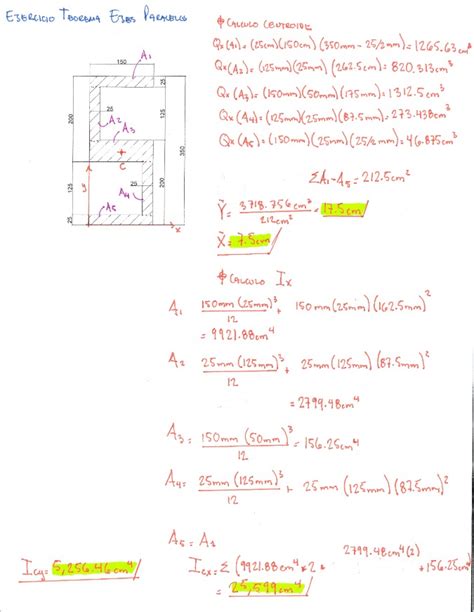 EJERCICIO TEOREMA EJES PARALELOS
⌀ CALCULO CENTROIDE
Qx(A1)= (25cm)(150cm)(350mm - 25/2mm) = 1265.63cm³
Qx(A2)= (125mm)(25mm)(262.5cm) = 820.313cm³
Qx(A3)= (150mm)(50mm)(175mm) = 1312.5cm³
Qx(A4)= (125mm)(25mm)(87.5mm) = 273.438cm³
Qx(A5)= (150mm)(25mm)(25/2mm) = 46.875cm³
ΣA1-A5 = 212.5cm²
Ȳ = 3718.756cm³ / 212cm² = 17.5cm
X̄ = 7.5cm
150
A1
200
25
A2
A3
C
350
125
y
A4
25
125
A5
25
x
⌀ CALCULO Ix
A1 150mm(25mm)³ / 12 + 150mm(25mm)(162.5mm)²
= 9921.88cm⁴
A2= 25mm(125mm)³ / 12 + 25mm(125mm)(87.5mm)²
= 2799.48cm⁴
A3= 150mm(50mm)³ / 12 = 156.25cm⁴
A4= 25mm(125mm)³ / 12 + 25mm(125mm)(87.5mm)²
A5 = A1
Icy= 5,256.46cm⁴
Icx= Σ (9921.88cm⁴*2 + 2799.48cm⁴(2) + 156.25cm⁴
= 25,599cm⁴